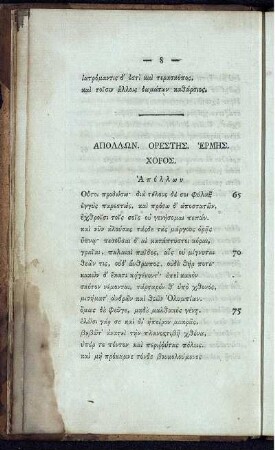 — 8 —
ἰατρόμαντις δ' ἐστὶ καὶ τερασκόπος,
καὶ τοῖσιν ἄλλοις δωμάτων καθάρσιος.
ΑΠΟΛΛΩΝ. ΟΡΕΣΤΗΣ. ἙΡΜΗΣ.
ΧΟΡΟΣ.
Ἀπόλλων
Οὔτοι προδώσω· διὰ τέλους δέ σοι φύλαξ 65
ἐγγὺς παρεστὼς, καὶ πρόσω δ' ἀποστατῶν,
ἐχθροῖσι τοῖς σοῖς οὐ γενήσομαι πέπων.
καὶ νῦν ἁλούσας τάσδε τὰς μάργους ὁρᾷς
ὕπνῳ· πεσοῦσαι δ' αἱ κατάπτυστοι κόραι,
γραῖαι, παλαιαὶ παῖδες, αἷς οὐ μίγνυται 70
θεῶν τις, οὐδ' ἄνθρωπος, οὐδὲ θήρ ποτε·
κακῶν δ' ἕκατι κἀγένοντ'· ἐπεὶ κακὸν
σκότον νέμονται, τάρταρόν θ' ὑπὸ χθονὸς,
μισήματ' ἀνδρῶν καὶ θεῶν Ὀλυμπίων.
ὅμως δὲ φεῦγε, μηδὲ μαλθακὸς γένῃ. 75
ἐλῶσι γάρ σε καὶ δι' ἠπείρου μακρᾶς,
βεβῶντ' ἀνατεὶ τὴν πλανοστιβῆ χθόνα,
ὑπέρ τε πόντον καὶ περιῤῥύτας πόλεις.
καὶ μὴ πρόκαμνε τόνδε βουκολούμενος